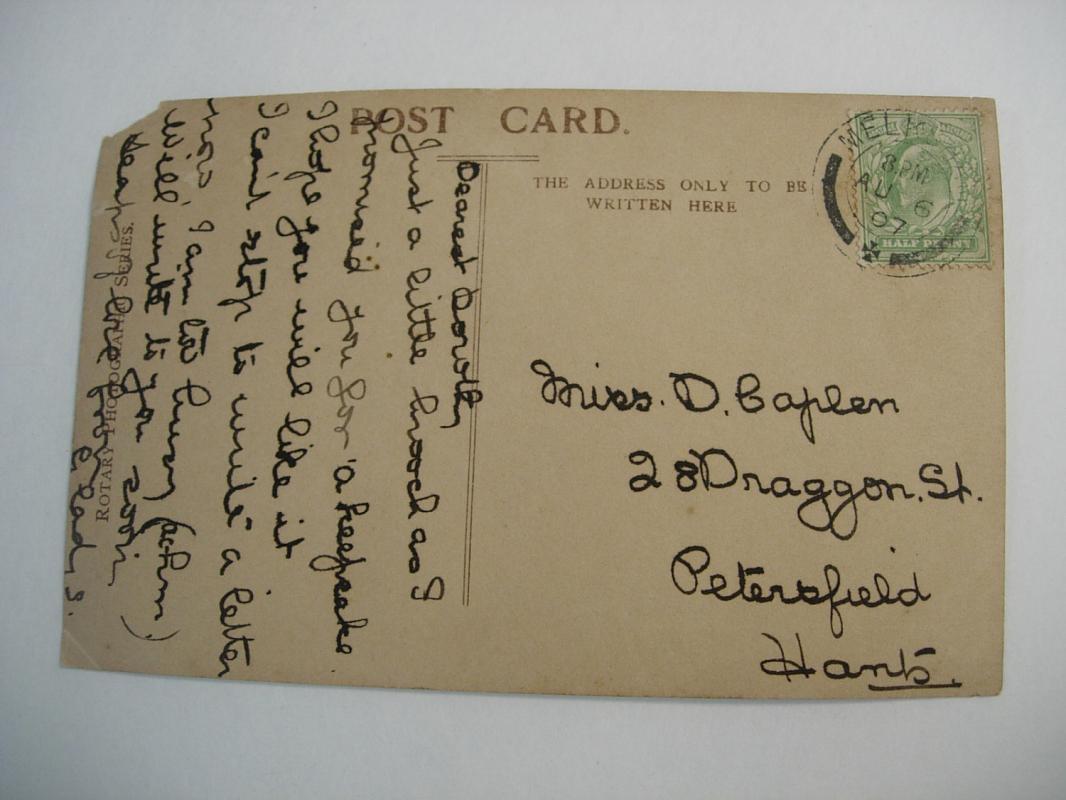 POST CARD.
THE ADDRESS ONLY TO BE
WRITTEN HERE
8. PM
AU 6
07
HALF PENNY
Dearest Dorothy
Just a little brooch as I
promised you for a keepsake.
I hope you will like it
I cant stop to write a letter
now I am too busy (achum)
will write to you soon
Heaps of love from
Glad, S.
Miss. D. Caplen
28 Draggon. St.
Petersfield
Hants.
ROTARY PHOTOGRAPHIC SERIES.